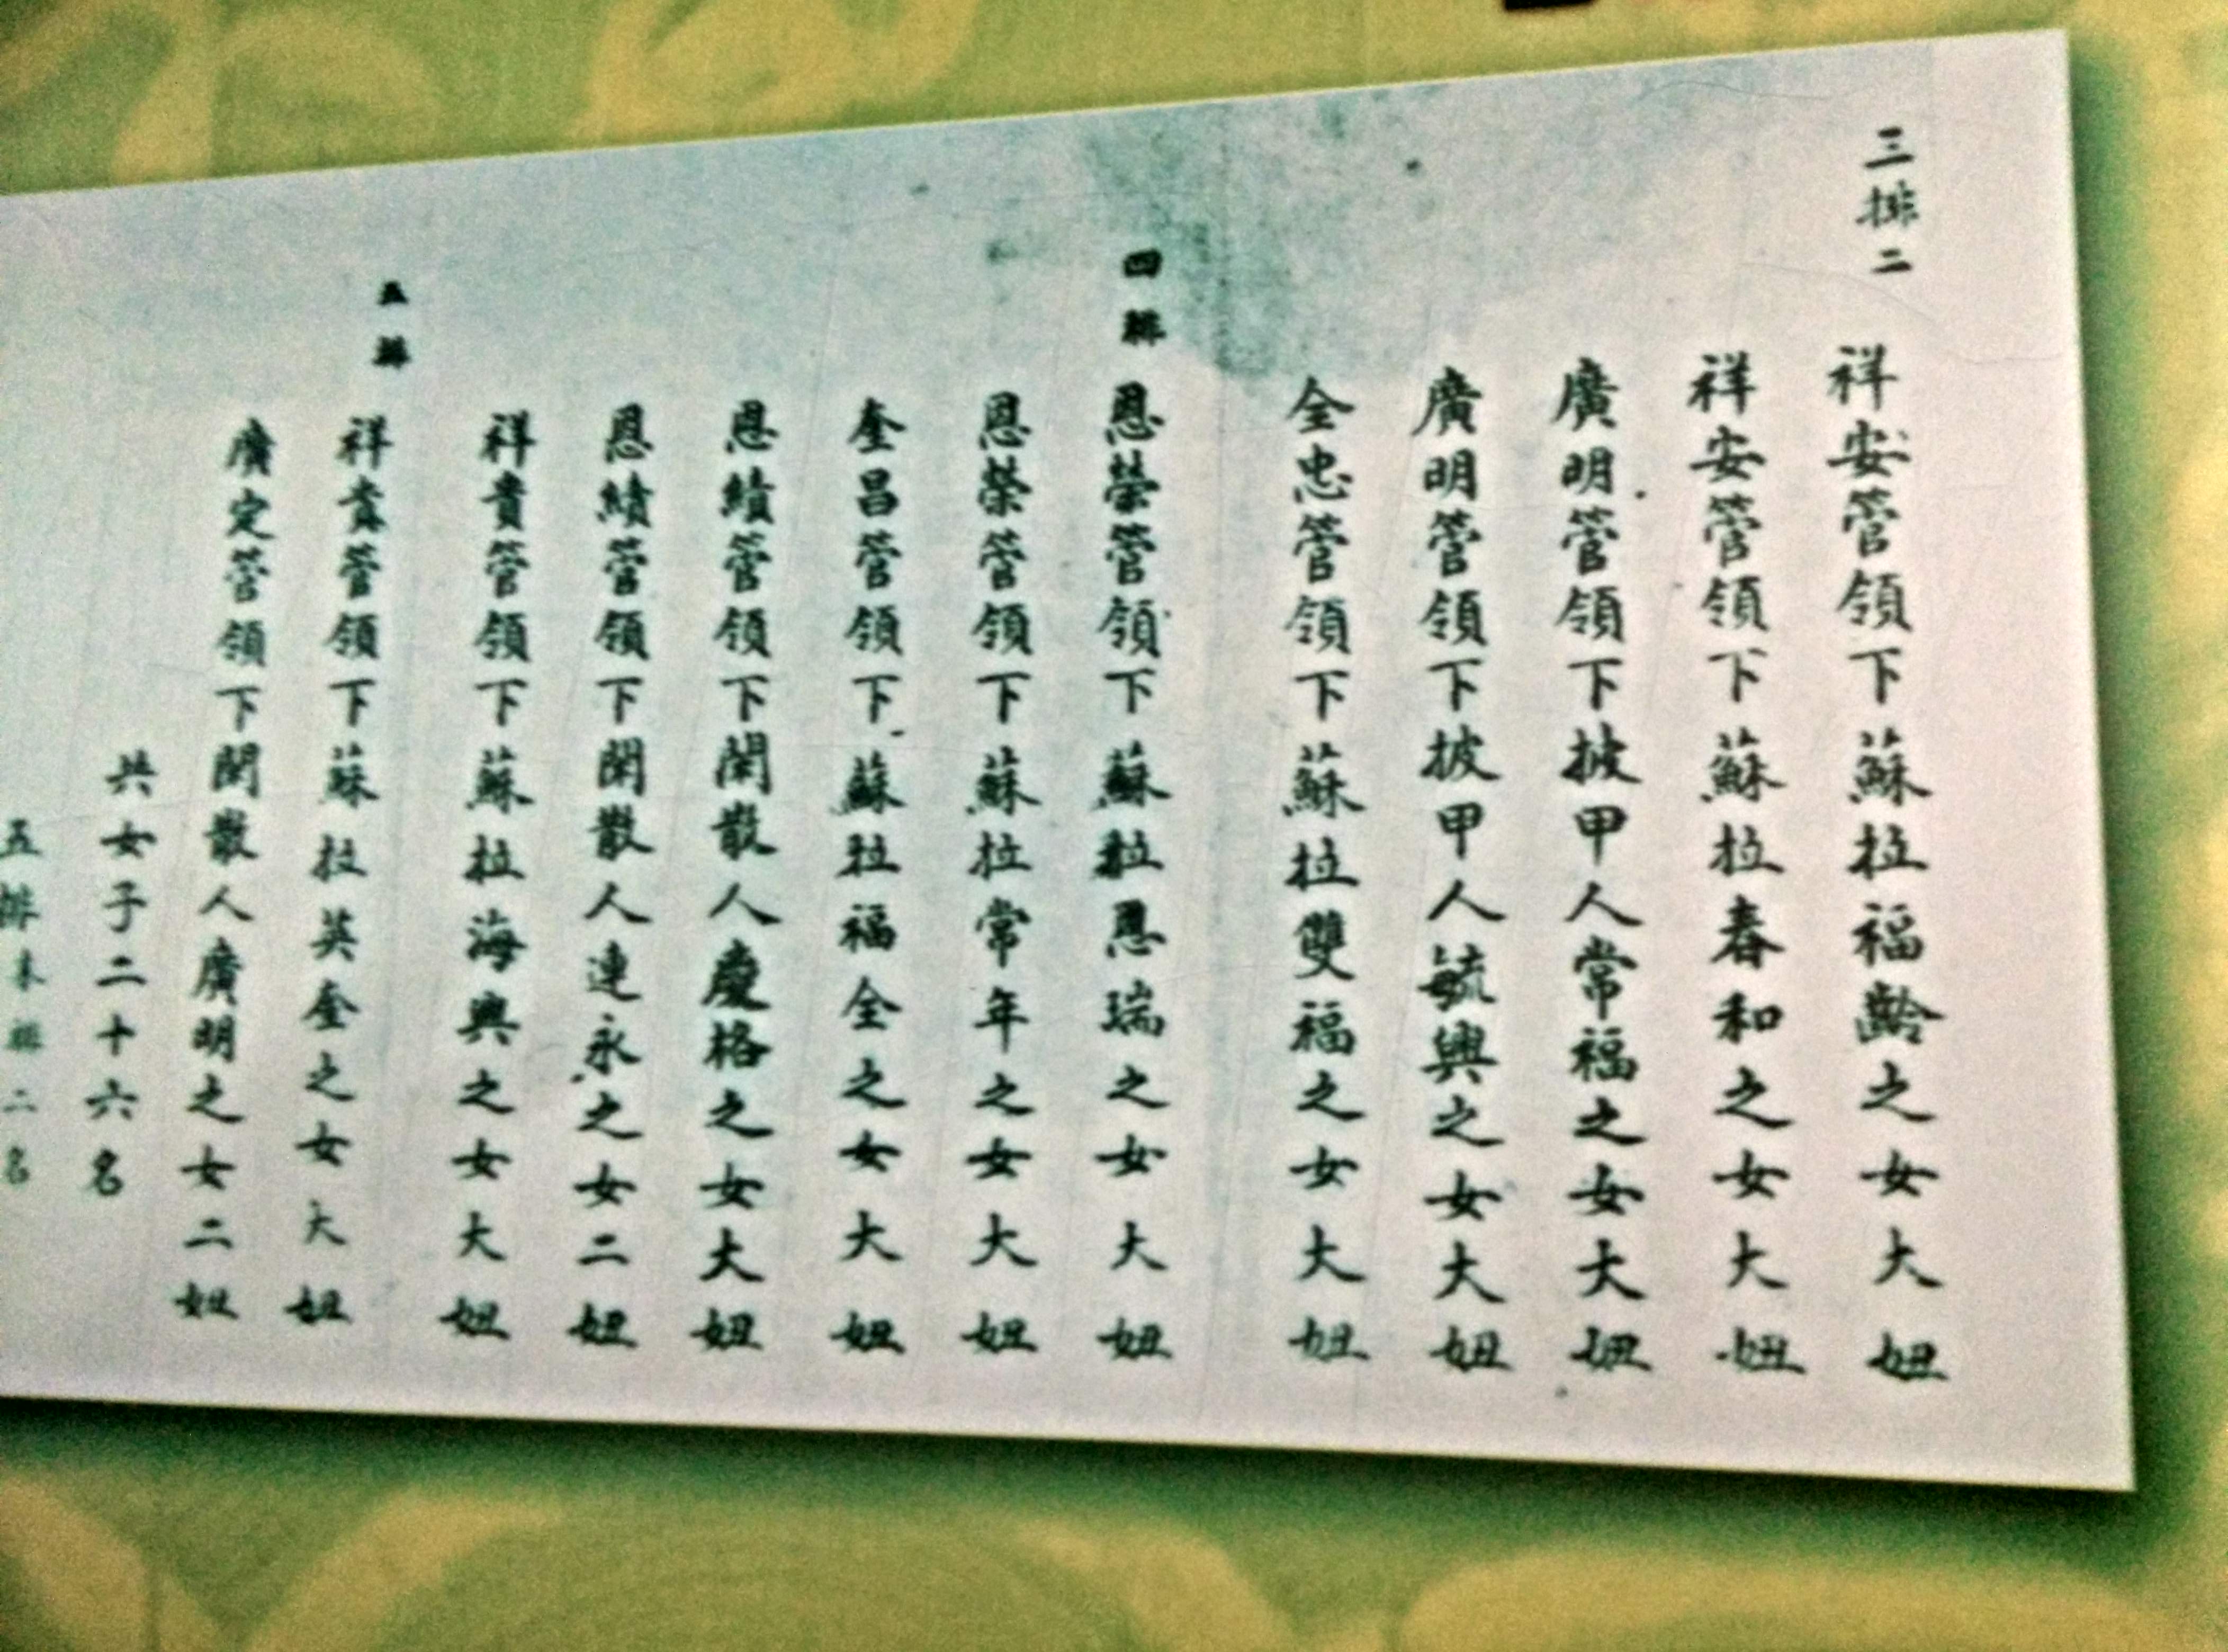 三排二
祥安管領下蘇拉福齡之女大妞
祥安管領下蘇拉春和之女大妞
廣明管領下披甲人常福之女大妞
廣明管領下披甲人毓興之女大妞
全忠管領下蘇拉雙福之女大妞
四排
恩榮管領下蘇拉恩瑞之女大妞
恩榮管領下蘇拉常年之女大妞
奎昌管領下蘇拉福全之女大妞
恩績管領下閑散人慶格之女大妞
恩績管領下閑散人連永之女二妞
祥貴管領下蘇拉海興之女大妞
五排
祥貴管領下蘇拉英奎之女大妞
廣定管領下閑散人廣明之女二妞
共女子二十六名
五排末排二名